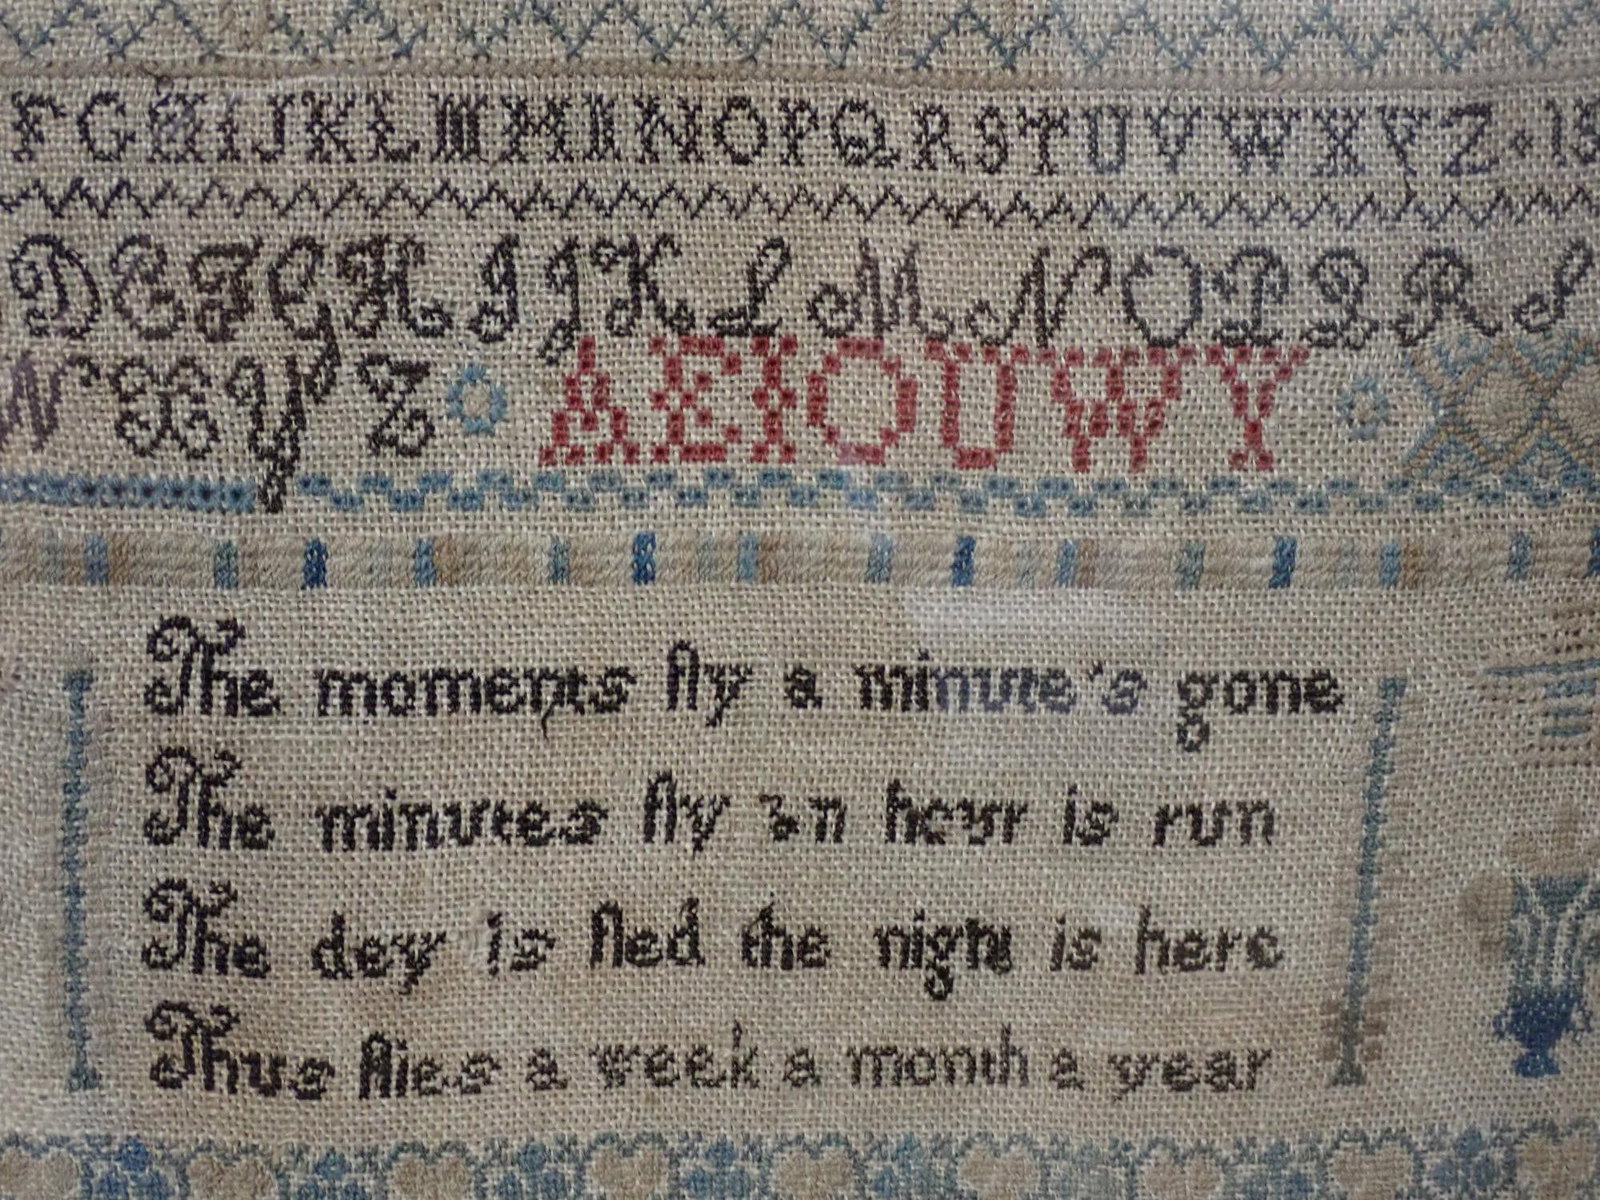 F G H I J K L M N O P Q R S T U V W X Y Z
D E F G H I J K L M N O P Q R S
W X Y Z A E I O U W Y
The moments fly a minute's gone
The minutes fly an hour is run
The day is fled the night is here
Thus flies a week a month a year